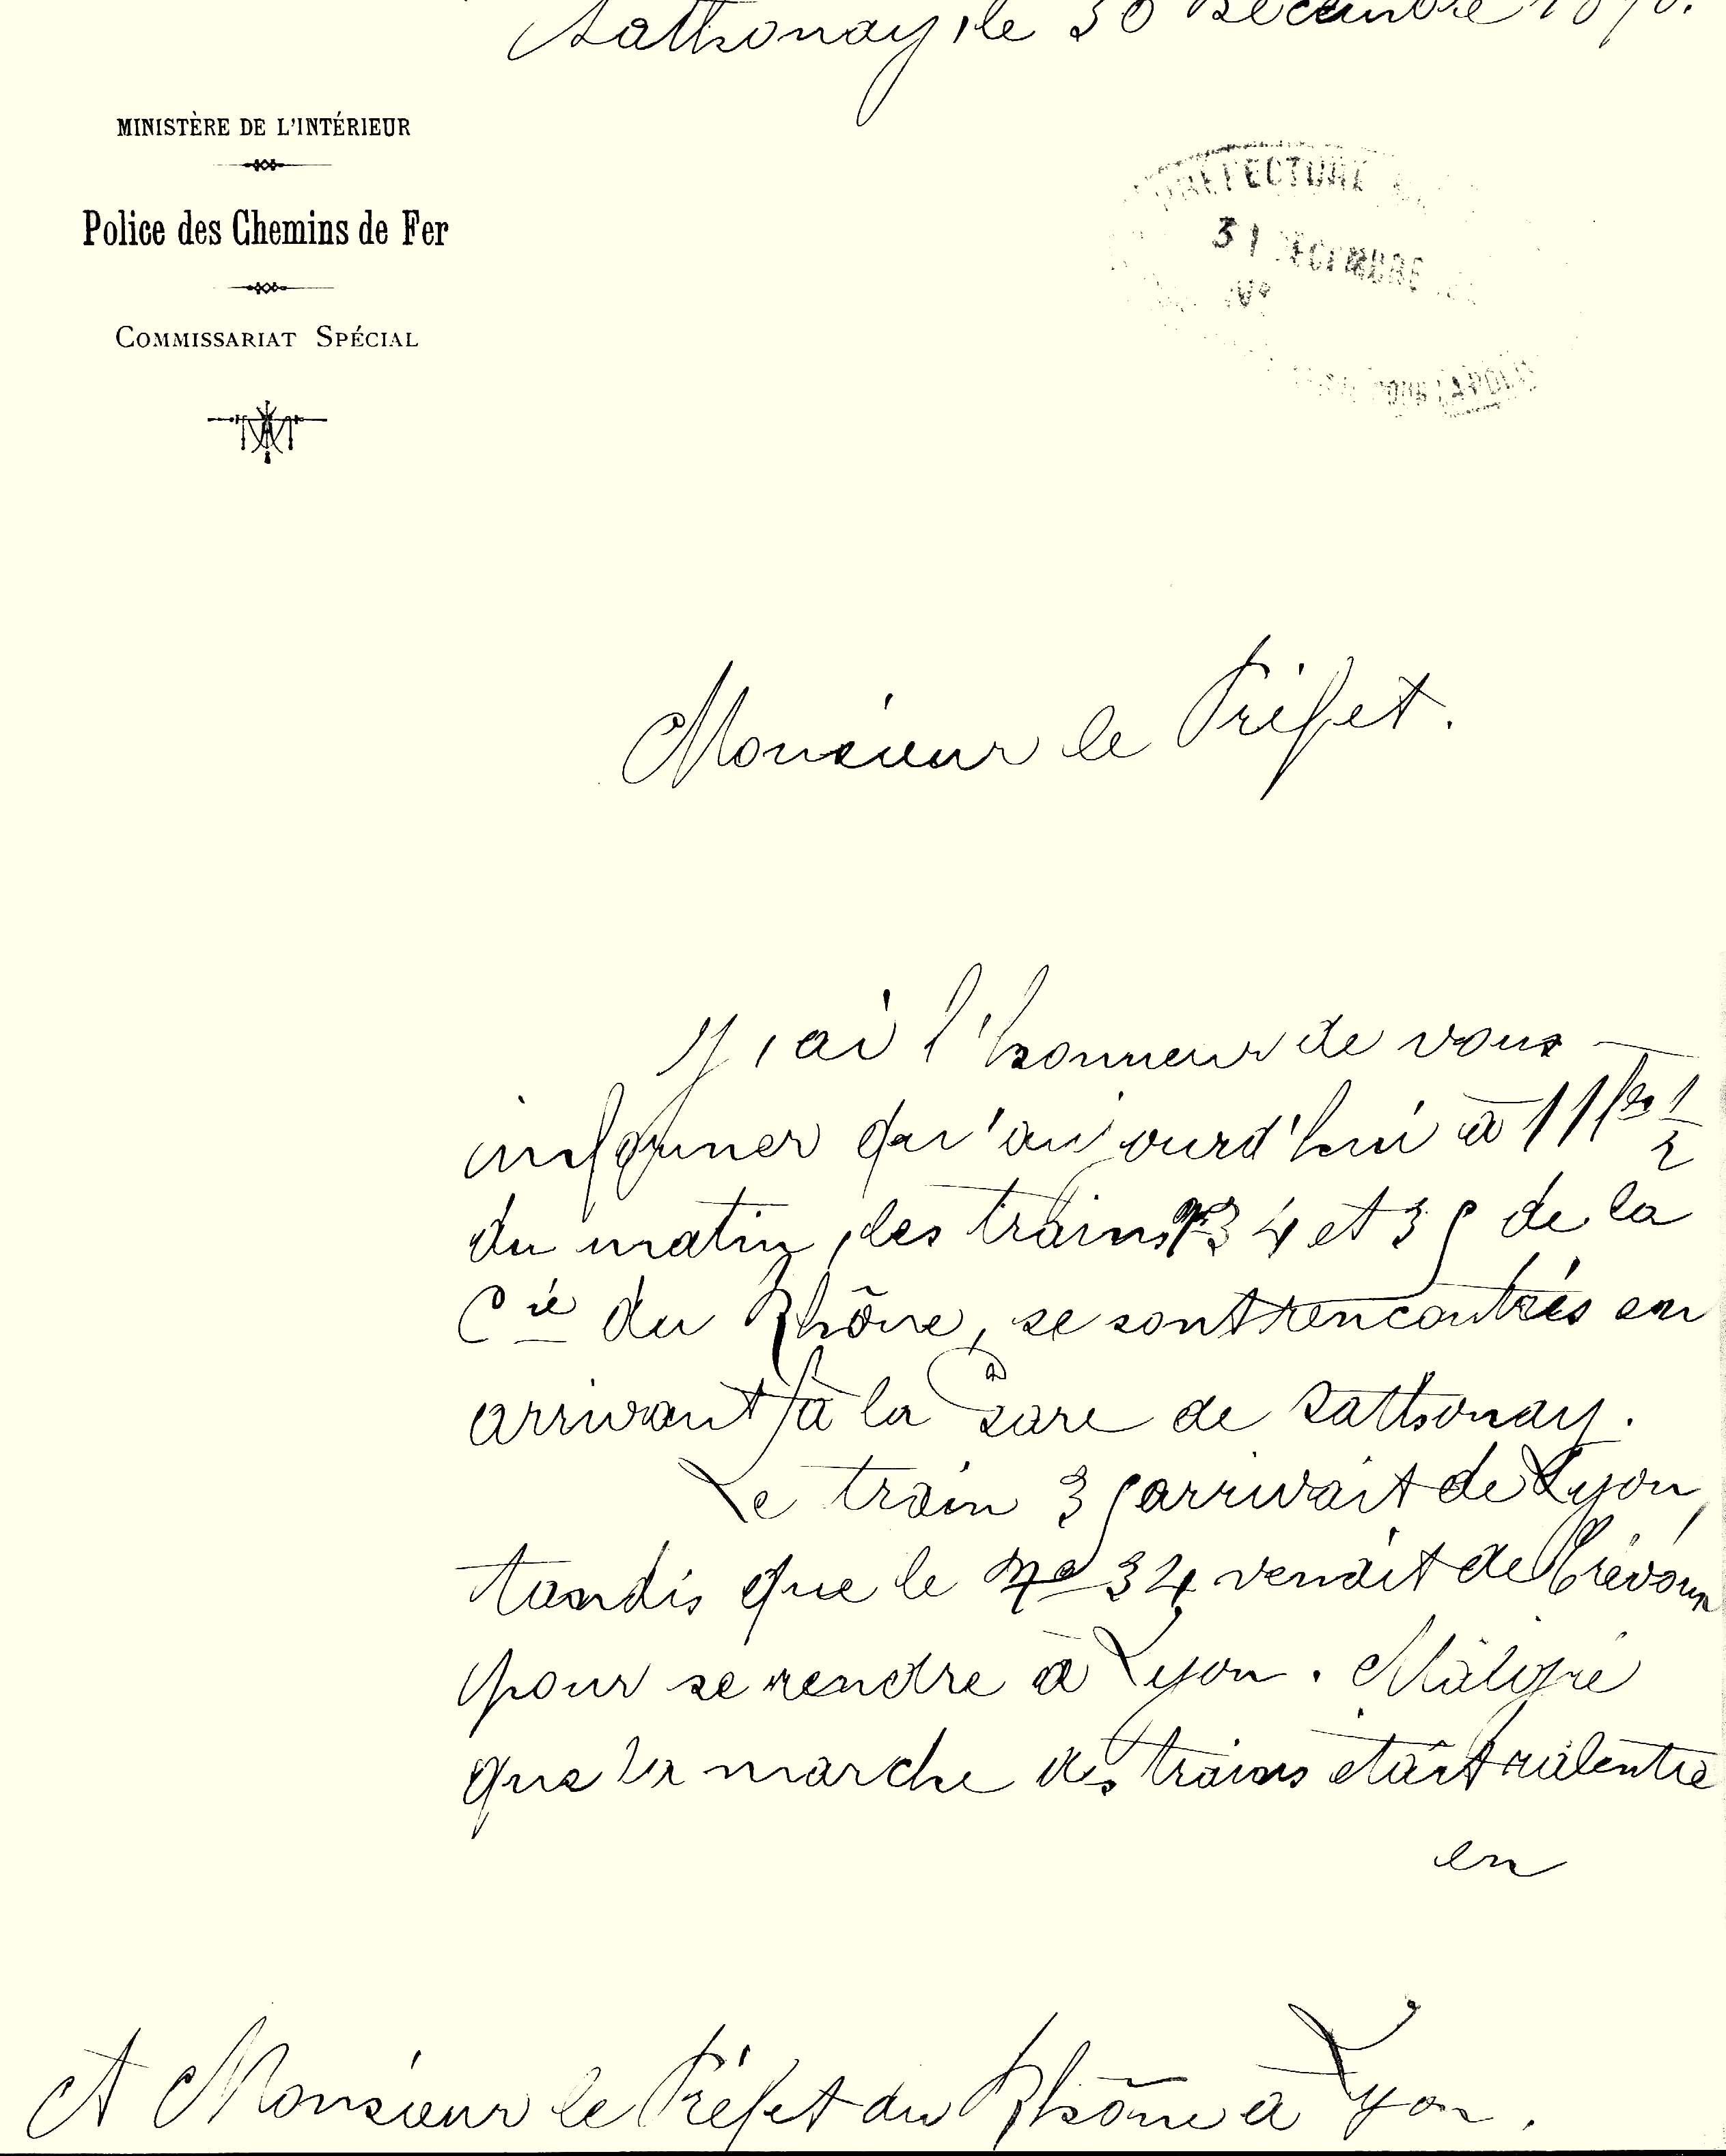 Sathonay, le 30 Décembre
MINISTÈRE DE L'INTÉRIEUR
Police des Chemins de Fer
COMMISSARIAT SPÉCIAL
PRÉFECTURE
31 DÉCEMBRE
Monsieur le Préfet.
J'ai l'honneur de vous
informer qu'aujourd'hui à 11 hes 1/2
du matin, les trains 34 et 35 de la
Cie du Rhône, se sont rencontrés en
arrivant à la Gare de Sathonay.
Le train 35 arrivait de Lyon,
tandis que le No 34 venait de Trévoux
pour se rendre à Lyon. Malgré
que la marche des trains était ralentie
en
A Monsieur le Préfet du Rhône à Lyon.